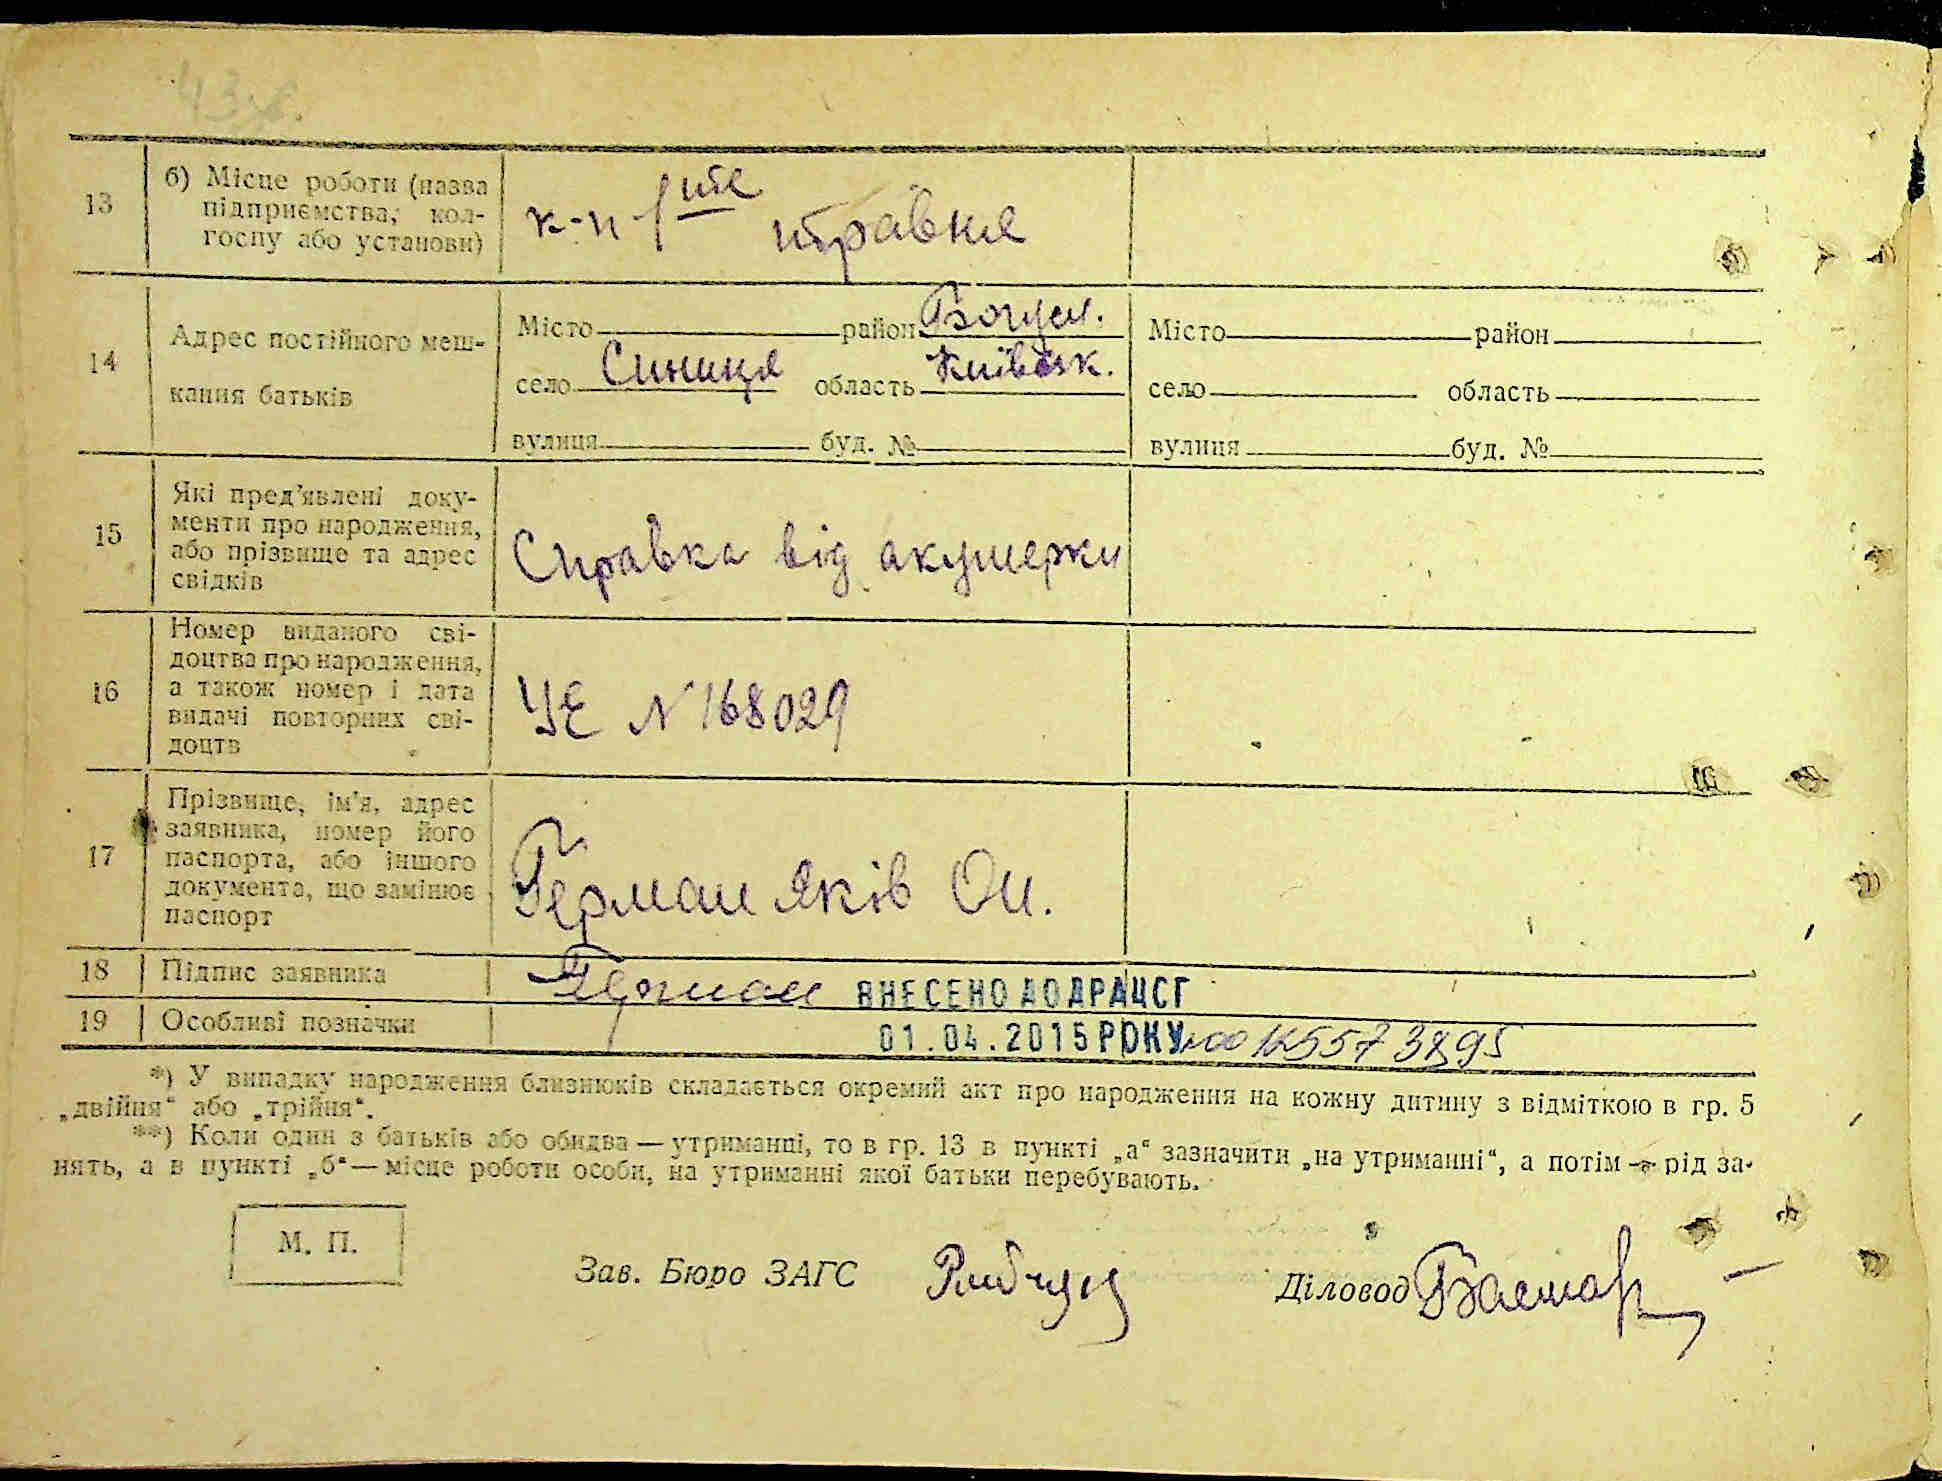 43зв.
13
б) Місце роботи (назва
підприємства, кол-
госпу або установи)
к-п 1ше травня
14
Адрес постійного меш-
кання батьків
Місто район Богусл.
село Синиця область Київськ.
вулиця буд. №
Місто район
село область
вулиця буд. №
15
Які пред'явлені доку-
менти про народження,
або прізвище та адрес
свідків
Справка від акушерки
16
Номер виданого сві-
доцтва про народження,
а також номер і дата
видачі повторних сві-
доцтв
УЕ N 168029
17
Прізвище, ім'я, адрес
заявника, номер його
паспорта, або іншого
документа, що замінює
паспорт
Герман Яків Он.
18 Підпис заявника
Герман
ВНЕСЕНО ДО ДРАЦСГ
19 Особливі позначки
01.04.2015 РОКУ
*) У випадку народження близнюків складається окремий акт про народження на кожну дитину з відміткою в гр. 5
„двійня“ або „трійня“.
**) Коли один з батьків або обидва — утриманці, то в гр. 13 в пункті „а“ зазначити „на утриманні“, а потім — рід за-
нять, а в пункті „б“ — місце роботи особи, на утриманні якої батьки перебувають.
М. П.
Зав. Бюро ЗАГС
Діловод